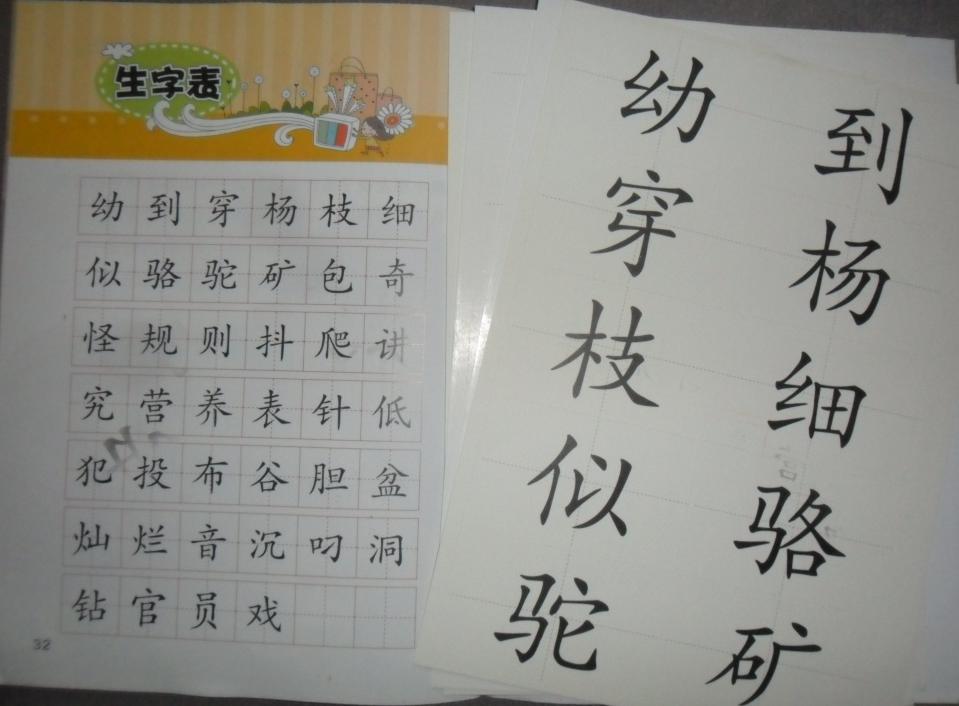 生字表
幼到穿杨枝细
似骆驼矿包奇
怪规则抖爬讲
究营养表针低
犯投布谷胆盆
灿烂音沉叼洞
钻官员戏
32
幼到
穿杨
枝细
似骆
驼矿